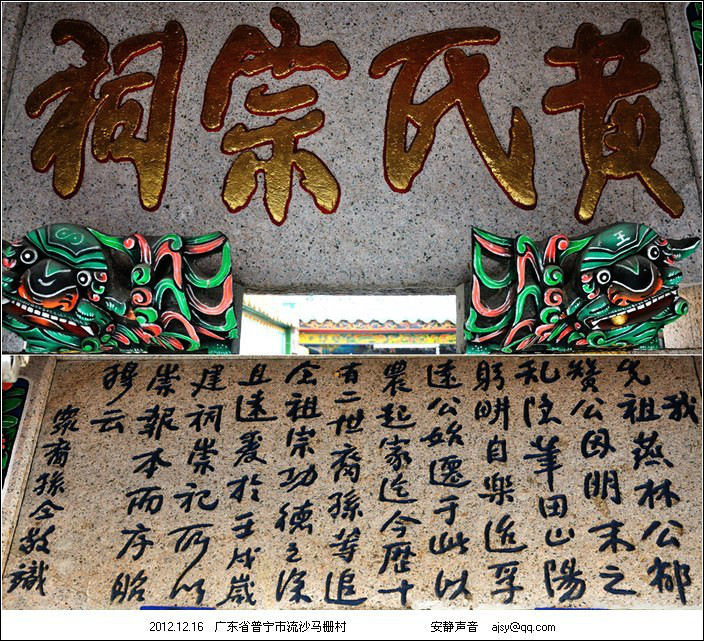 黄氏宗祠
王
我
先祖燕林公
贊公因明末之
乱隐華田山陽
躬畊自樂迨孚
遠公始遷于此以
農起家迄今歷十
有二世裔孫等追
念祖宗功德之深
且遠爰於壬戌歲
建祠崇祀所以
崇報本而序昭
穆云
衆裔孫仝敬識
2012.12.16 广东省普宁市流沙马栅村 安静声音 ajsy@qq.com